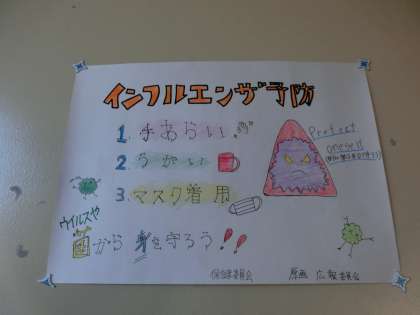 インフルエンザ予防
1. 手あらい
2. うがい
3. マスク着用
Protect
oneself
ウイルスや
菌から身を守ろう!!
保健委員会 原画 広報委員会